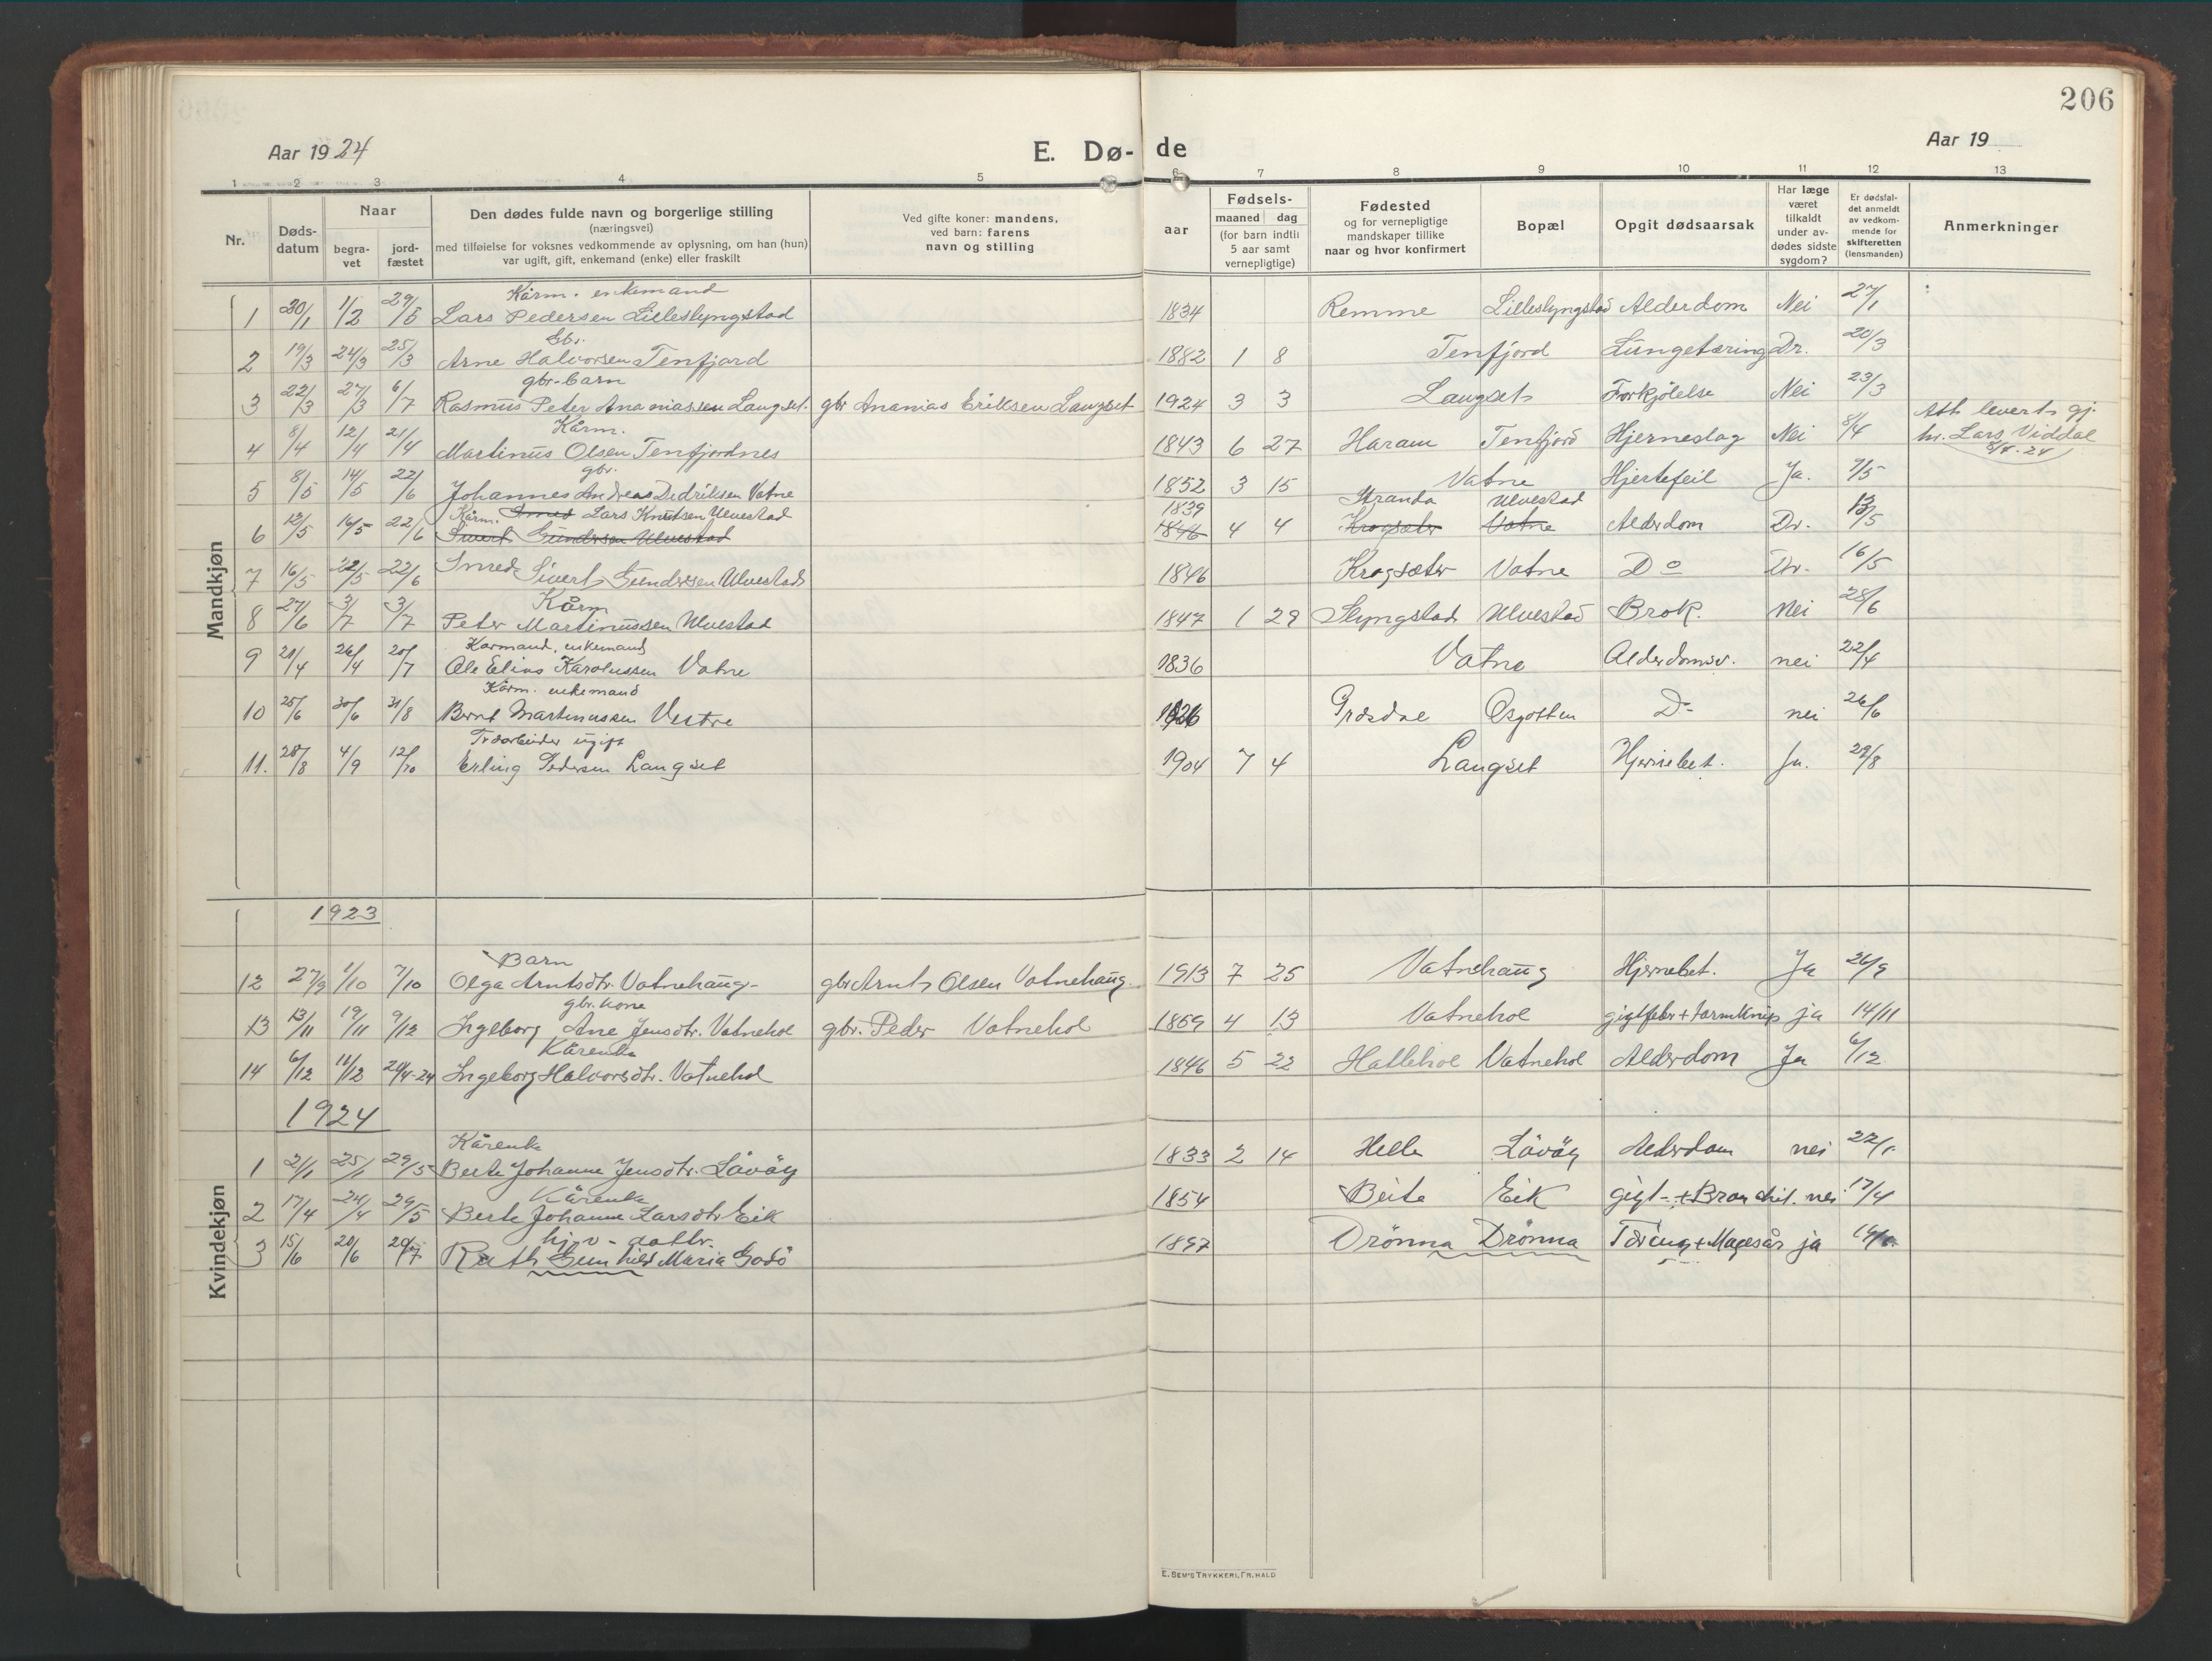 206
Aar 1924
E. Dø-
de
Aar 19
1 2 3 4 5 6 7 8 9 10 11 12 13
Nr.
Døds-
datum
Naar
begra-
vet
jord-
fæstet
Den dødes fulde navn og borgerlige stilling
(næringsvei)
med tilføielse for voksnes vedkommende av oplysning, om han (hun)
var ugift, gift, enkemand (enke) eller fraskilt
Ved gifte koner: mandens,
ved barn: farens
navn og stilling
aar
Fødsels-
maaned dag
(for barn indtil
5 aar samt
vernepligtige)
Fødested
og for vernepligtige
mandskaper tillike
naar og hvor konfirmert
Bopæl
Opgit dødsaarsak
Har læge
været
tilkaldt
under av-
dødes sidste
sygdom?
Er dødsfal-
det anmeldt
av vedkom-
mende for
skifteretten
(lensmanden)
Anmerkninger
Mandkjøn
Kårm. enkemand
1 20/1 1/2 29/5 Lars Pedersen Lilleslyngstad 1834 Remme Lilleslyngstad Alderdom Nei 27/1
Gbr.
2 19/3 24/3 25/3 Arne Halvorsen Tenfjord 1882 1 8 Tenfjord Lungetæring Dr. 20/3
gbr-barn
3 22/3 27/3 6/7 Rasmus Peter Ananiassen Langset. gbr Ananias Eriksen Langset 1924 3 3 Langset Forkjölelse Nei 23/3
Kårm.
4 8/4 12/4 21/4 Martinus Olsen Tenfjordnes 1843 6 27 Haram Tenfjord Hjerneslag Nei 8/4 Att. levert gj.
hr. Lars Viddal
8/4.24
gbr.
5 8/5 14/5 22/6 Johannes Andreas Didriksen Vatne 1852 3 15 Vatne Hjertefeil Ja. 9/5
Kårm. Smed Lars Knutsen Ulvestad 1839 Stranda Ulvestad
6 12/5 16/5 22/6 Sivert Gundersen Ulvestad 1846 4 4 Krogsæter Vatne Alderdom Dr. 13/5
7 16/5 22/5 22/6 Smed Sivert Gundersen Ulvestad 1846 Krogsæter Vatne Do Dr. 16/5
Kårm
8 27/6 3/7 3/7 Peter Martinussen Ulvestad 1847 1 29 Slyngstad Ulvestad Brok. Nei 28/6
Karmand, enkemand
9 21/4 26/4 20/7 Ole Elias Karolussen Vatne 1836 Vatne Alderdomsv. nei 22/4
Kårm. enkemand
10 25/6 30/6 31/8 Bernt Martinussen Vestre Græsdal D- nei 26/6
Træarbeider ugift
11. 28/8 4/9 12/10 Erling Pedersen Langset 1904 7 4 Langset Hjernebet. Ja. 29/8
1923
Kvindekjøn
Barn
12 27/9 1/10 7/10 Olga Arntsdtr. Vatnehaug gbr Arnt Olsen Vatnehaug. 1913 7 25 Vatnehaug Hjernebet. Ja 26/9
gbr. kone
13 13/11 19/11 9/12 Ingeborg Ane Jensdtr. Vatnehol gbr. Peder Vatnehol 1859 4 13 Vatnehol gigtfeber + tarmknip ja 14/11
Kårenke
14 6/12 11/12 20/4-24 Ingeborg Halvorsdtr. Vatnehol 1846 5 22 Hattehol Vatnehol Alderdom Ja 6/12
1924
Kårenke
1 2/1 25/1 29/5 Berte Johanne Jensdtr. Lövöy 1833 2 14 Helle Lövöy Alderdom nei 22/1
Kårenke
2 17/4 24/4 29/5 Berte Johanne Larsdtr Eik 1854 Beite Eik gigt- + Bronchit. nei 17/4
3 15/6 20/6 20/7 Ruth Gunhild Maria Godö 1897 Drönna Drönna Tæring + Magesår ja
E. SEM'S TRYKKERI, FR.HALD